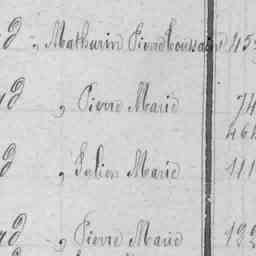 d°, Mathurin Pierre Toussaint 45
d°, Pierre Marie 74
464
d°, Julien Marie 111
d°, Pierre Marie